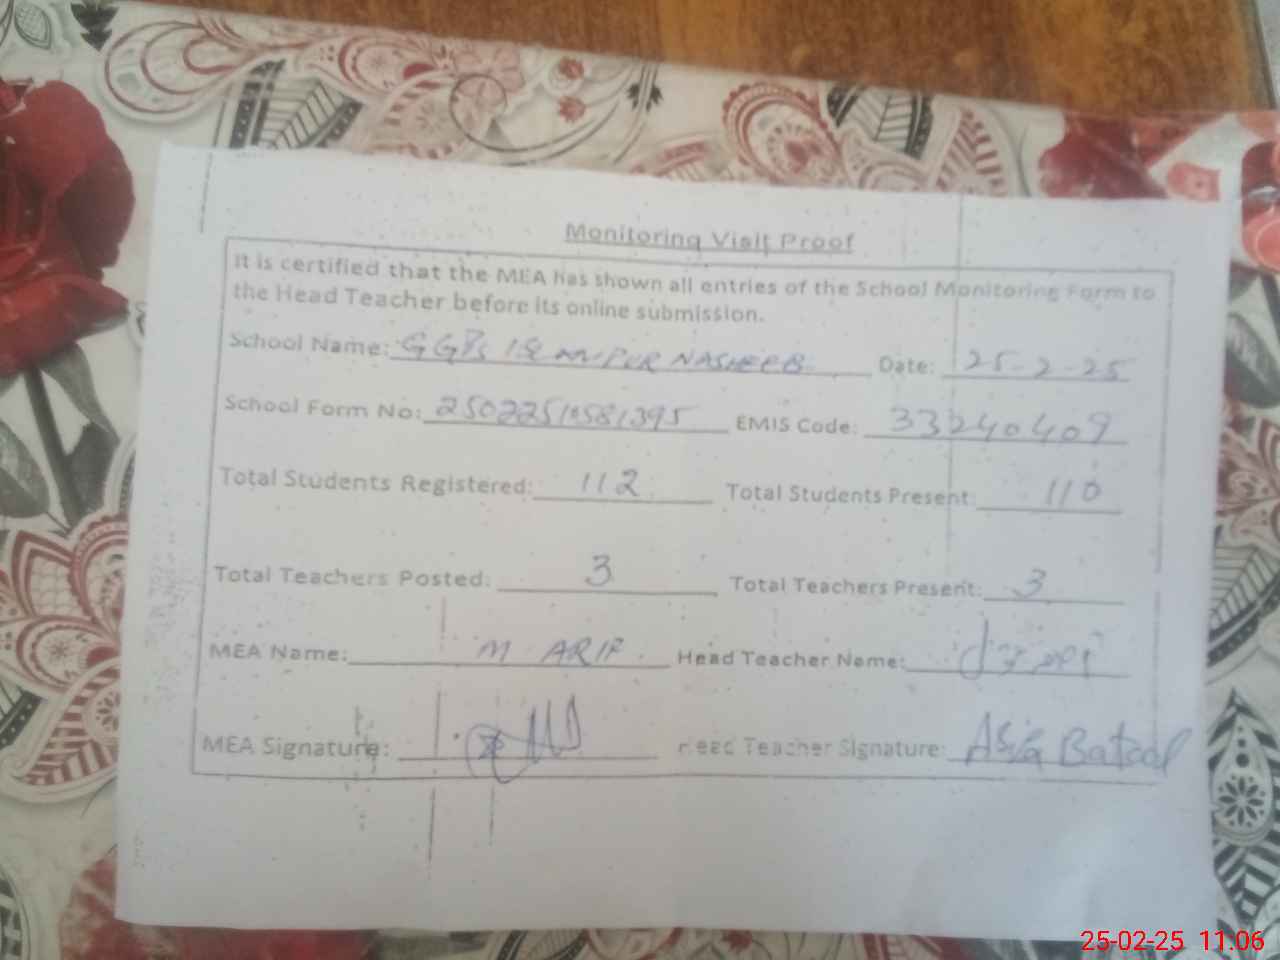 Monitoring Visit Proof
It is certified that the MEA has shown all entries of the School Monitoring Form to
the Head Teacher before its online submission.
School Name: NASHEEB Date: 25-2-25
School Form No: EMIS Code: 33240409
Total Students Registered: 112 Total Students Present: 110
Total Teachers Posted: 3 Total Teachers Present: 3
MEA Name: M ARIF Head Teacher Name:
MEA Signature: Head Teacher Signature: Asia Batool
25-02-25 11:06